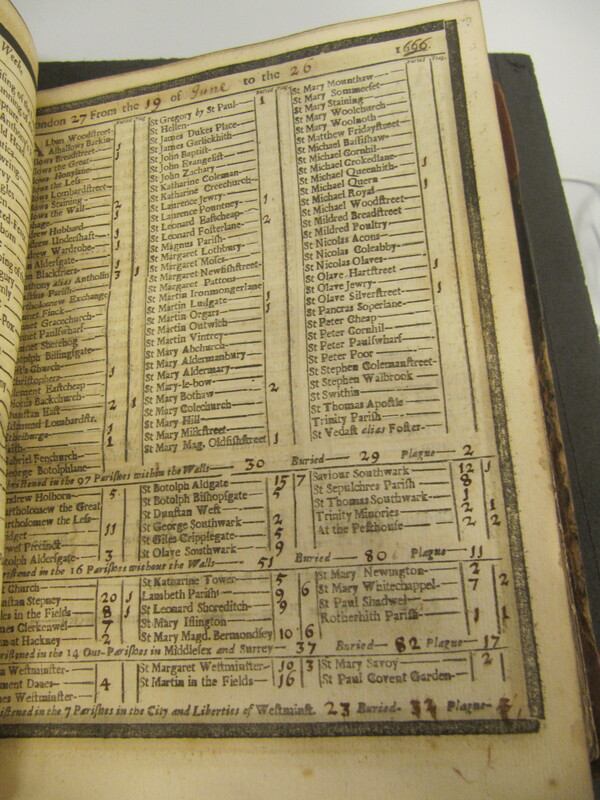 ondon 27 From the 19 of June to the 26 1666.
Buried Plag.
Lban Woodstreet
Alhallows Barkin 1
lows Breadstreet 1
lows the Great 1
lows Honylane
lows the Less
lows Lombardstreet
lows Staining 2
lows the Wall 1
drew Hubbard
drew Undershaft 1
drew Wardrobe 1
Aldersgate 1
Blackfriers 3 1
thony alias Antholin
tholomew Exchange
net Finck
net Gracechurch
net Paulswharf
net Sherehog
tolph Billingsgate
st's Church
hristophers 1
lement Eastcheap
ionis Backchurch 1
unstan East 2 1
dmund Lombardstr.
thelburga 1
aith 1
abriel Fenchurch
eorge Botolphlane
St Gregory by St Paul 1
St Hellen
St James Dukes Place
St James Garlickhith
St John Baptist
St John Evangelist
St John Zachary
St Katharine Coleman
St Katharine Creechurch
St Laurence Jewry
St Laurence Pountney 1
St Leonard Eastcheap
St Leonard Fosterlane 2
St Magnus Parish
St Margaret Lothbury
St Margaret Moses
St Margaret Newfishstreet
St Margaret Pattons
St Martin Ironmongerlane
St Martin Ludgate 1
St Martin Orgars 1
St Martin Outwich
St Martin Vintrey
St Mary Abchurch
St Mary Aldermanbury
St Mary Aldermary
St Mary-le-bow
St Mary Bothaw 2
St Mary Colechurch
St Mary Hill
St Mary Milkstreet
St Mary Mag. Oldfishstreet 1
St Mary Mounthaw
St Mary Sommerset
St Mary Staining
St Mary Woolchurch
St Mary Woolnoth
St Matthew Fridaystreet
St Michael Bassishaw
St Michael Cornhil
St Michael Crokedlane
St Michael Queenhith 1
St Michael Quern
St Michael Royal 1
St Michael Woodstreet
St Mildred Breadstreet
St Mildred Poultry
St Nicolas Acons
St Nicolas Coleabby
St Nicolas Olaves
St Olave Hartstreet 1
St Olave Jewry
St Olave Silverstreet 1
St Pancras Soperlane
St Peter Cheap
St Peter Cornhil
St Peter Paulswharf
St Peter Poor
St Stephen Colemanstreet
St Stephen Walbrook
St Swithin
St Thomas Apostle
Trinity Parish
St Vedast alias Foster
ristened in the 97 Parishes within the Walls 30 Buried 29 Plague 2
ndrew Holborn 5
artholomew the Great
artholomew the Less
ridget 11
ewel Precinct
otolph Aldersgate 3
St Botolph Aldgate 15 7
St Botolph Bishopsgate 5
St Dunstan West
St George Southwark 2
St Giles Cripplegate 5
St Olave Southwark 9
Saviour Southwark 12 1
St Sepulchres Parish 8
St Thomas Southwark 1
Trinity Minories 2 1
At the Pesthouse 2 2
ristened in the 16 Parishes without the Walls 51 Buried 80 Plague 11
t Church
nstan Stepney 20 1
les in the Fields 8 1
mes Clerkenwel 7
n at Hackney 2
St Katharine Tower 5
Lambeth Parish 9 6
St Leonard Shoreditch 9
St Mary Islington
St Mary Magd. Bermondsey 10 6
St Mary Newington 2
St Mary Whitechappel 7 2
St Paul Shadwel
Rotherhith Parish 1
ristened in the 14 Out-Parishes in Middlesex and Surrey 37 Buried 82 Plague 17
Westminster
ment Danes 4
mes Westminster
St Margaret Westminster 10 3
St Martin in the Fields 16
St Mary Savoy 2
St Paul Covent Garden
istened in the 7 Parishes in the City and Liberties of Westminst. 23 Buried 32 Plague